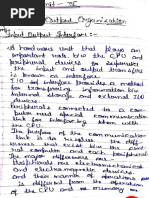 Unit - III
Input Output Organization
Input Output Interface :-
A hardware unit that plays an
important role b/w the CPU and
peripheral devices for supervising
the input and output transfer
is known as interface.
I/O Interface provides a method
for transferring information b/w
internal storage and external I/O
devices.
Peripherals connected to a computer
need special communication link
for interfacing them with
the CPU.
The purpose of the communication
link is to resolve the
differences that exist b/w the
computer and each peripheral.
The major differences are
Peripherals are electromechanical
and electromagnetic devices
and their manner of operation
is different from the operation
of the CPU and memory